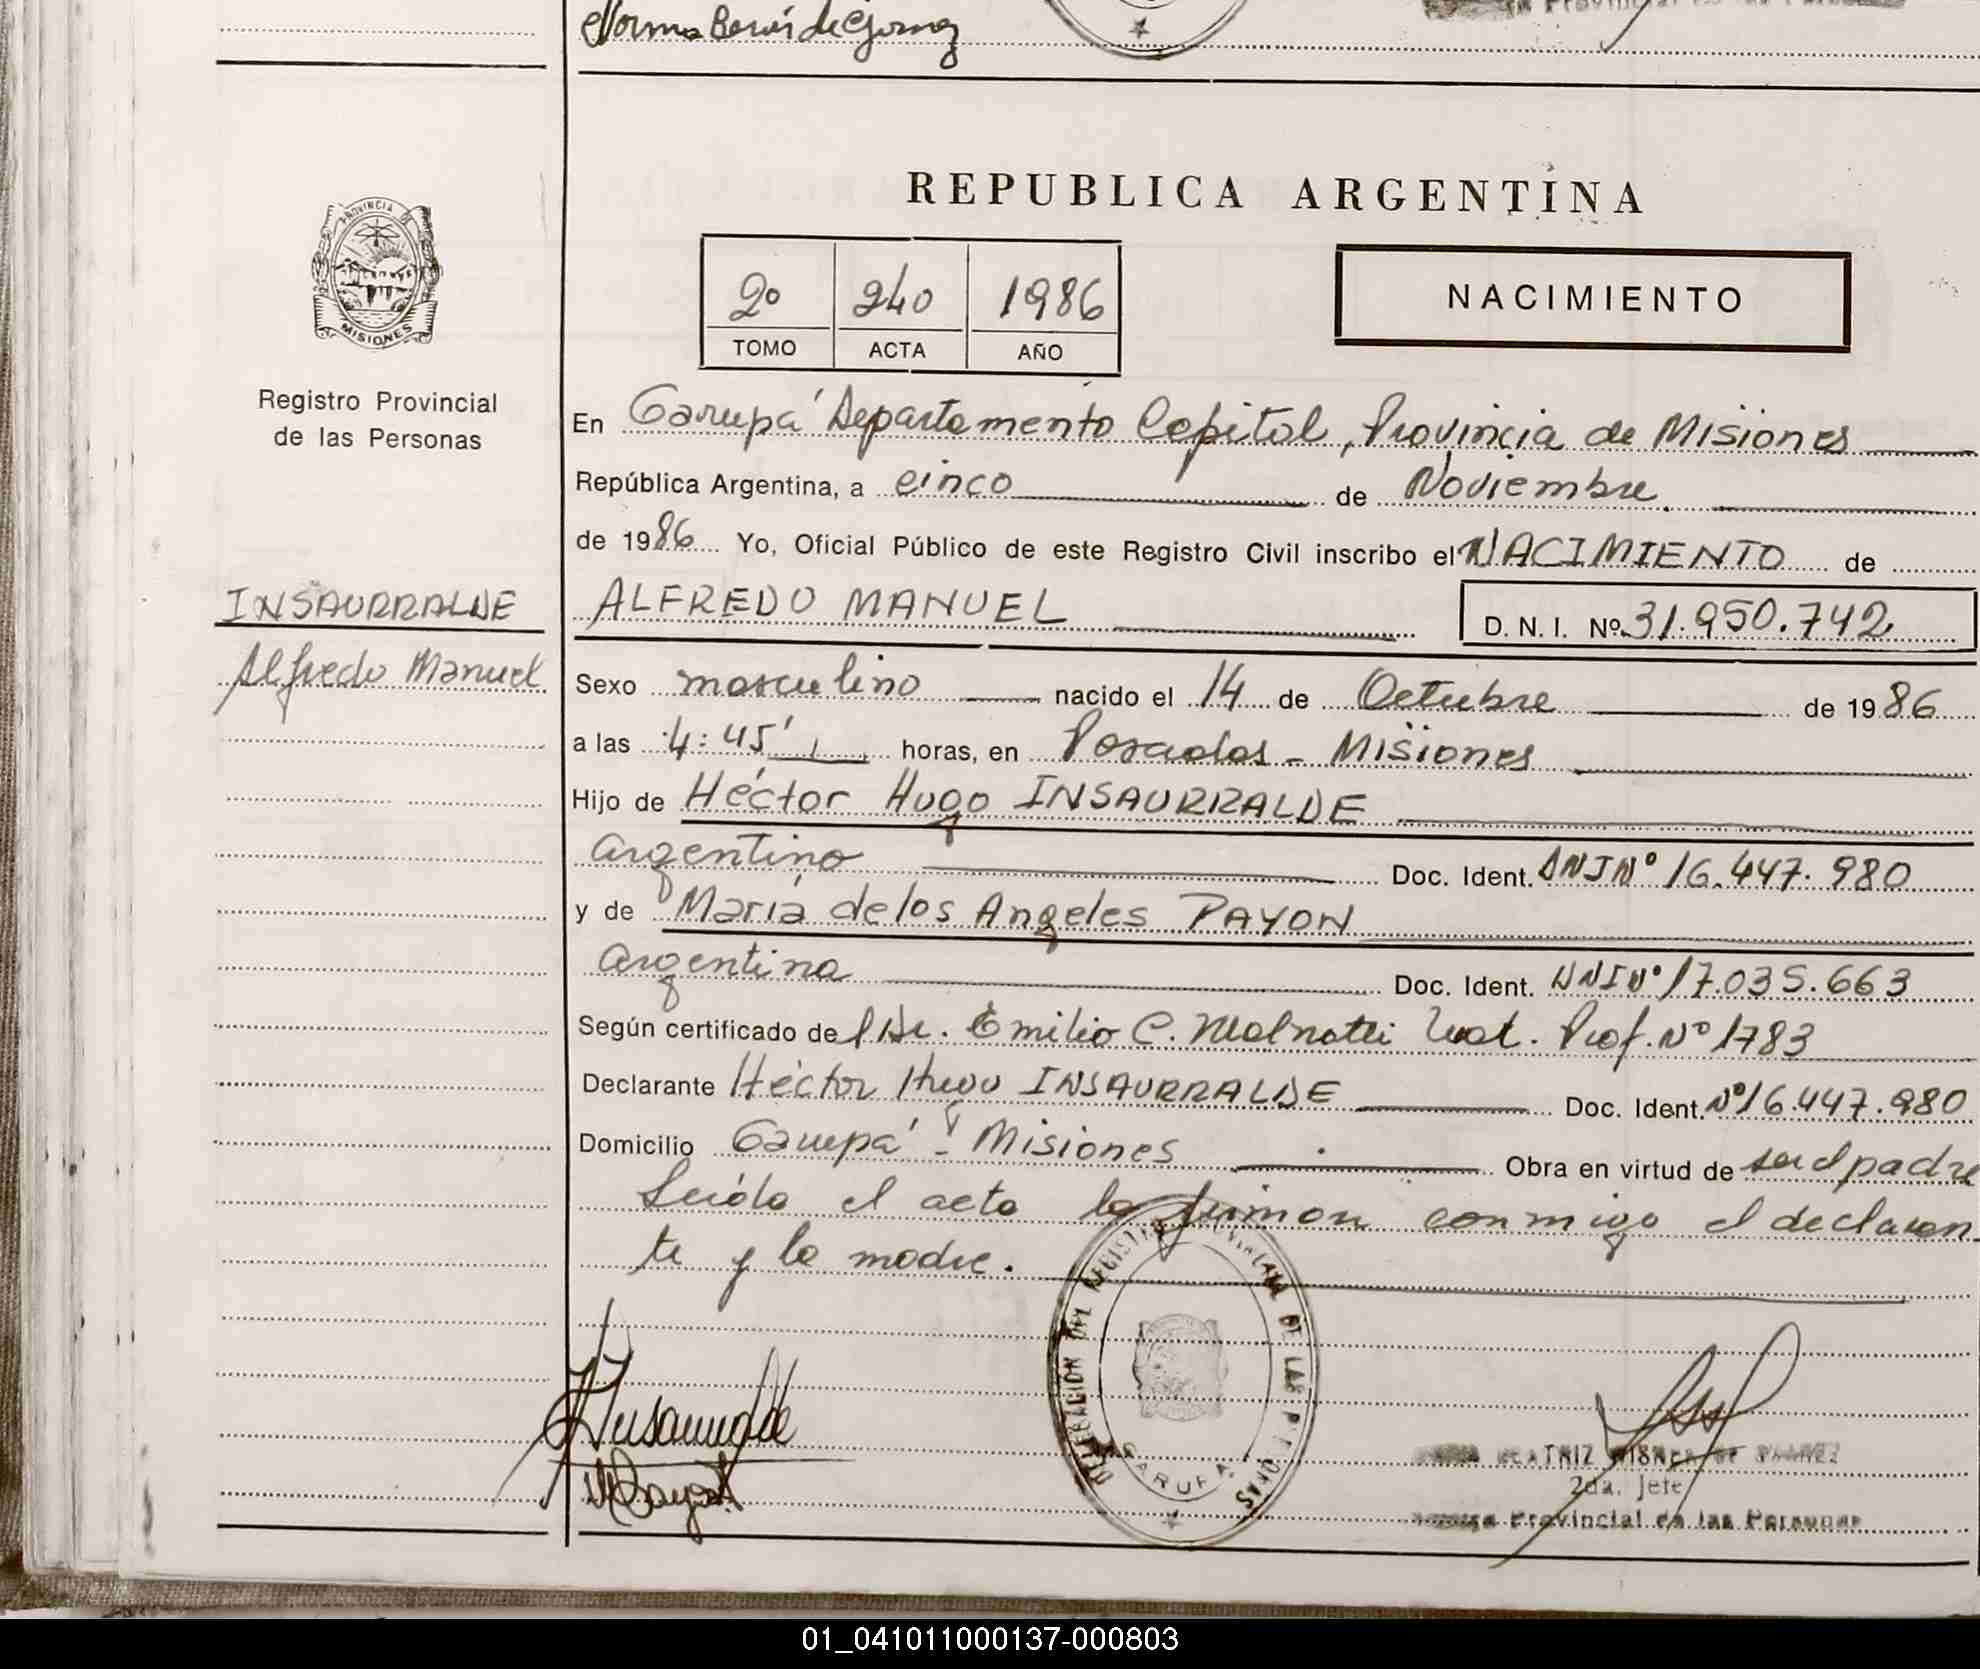 Norma Berús de Gomez
REPUBLICA ARGENTINA
PROVINCIA DE
MISIONES
Registro Provincial
de las Personas
2º 240 1986
TOMO ACTA AÑO
NACIMIENTO
En Garupá Departamento Capital, Provincia de Misiones
República Argentina, a cinco de Noviembre
de 1986 Yo, Oficial Público de este Registro Civil inscribo el NACIMIENTO de
INSAURRALDE
Alfredo Manuel
ALFREDO MANUEL D. N. I. Nº 31.950.742
Sexo masculino nacido el 14 de Octubre de 1986
a las 4:45' horas, en Posadas - Misiones
Hijo de Héctor Hugo INSAURRALDE
argentino Doc. Ident. DNI Nº 16.447.980
y de María de los Angeles PAYON
argentina Doc. Ident. DNI Nº 17.035.663
Según certificado del Dr. Emilio C. Malnatti Mat. Prof. Nº 1783
Declarante Héctor Hugo INSAURRALDE Doc. Ident. Nº 16.447.980
Domicilio Garupá - Misiones Obra en virtud de ser el padre
Leída el acta la firman conmigo el declaran
te y la madre.
DELEGACION DEL REGISTRO PROVINCIAL DE LAS PERSONAS
GARUPA
HInsaurralde
BEATRIZ
2da. Jefe
Provincial de las Personas
01_041011000137-000803